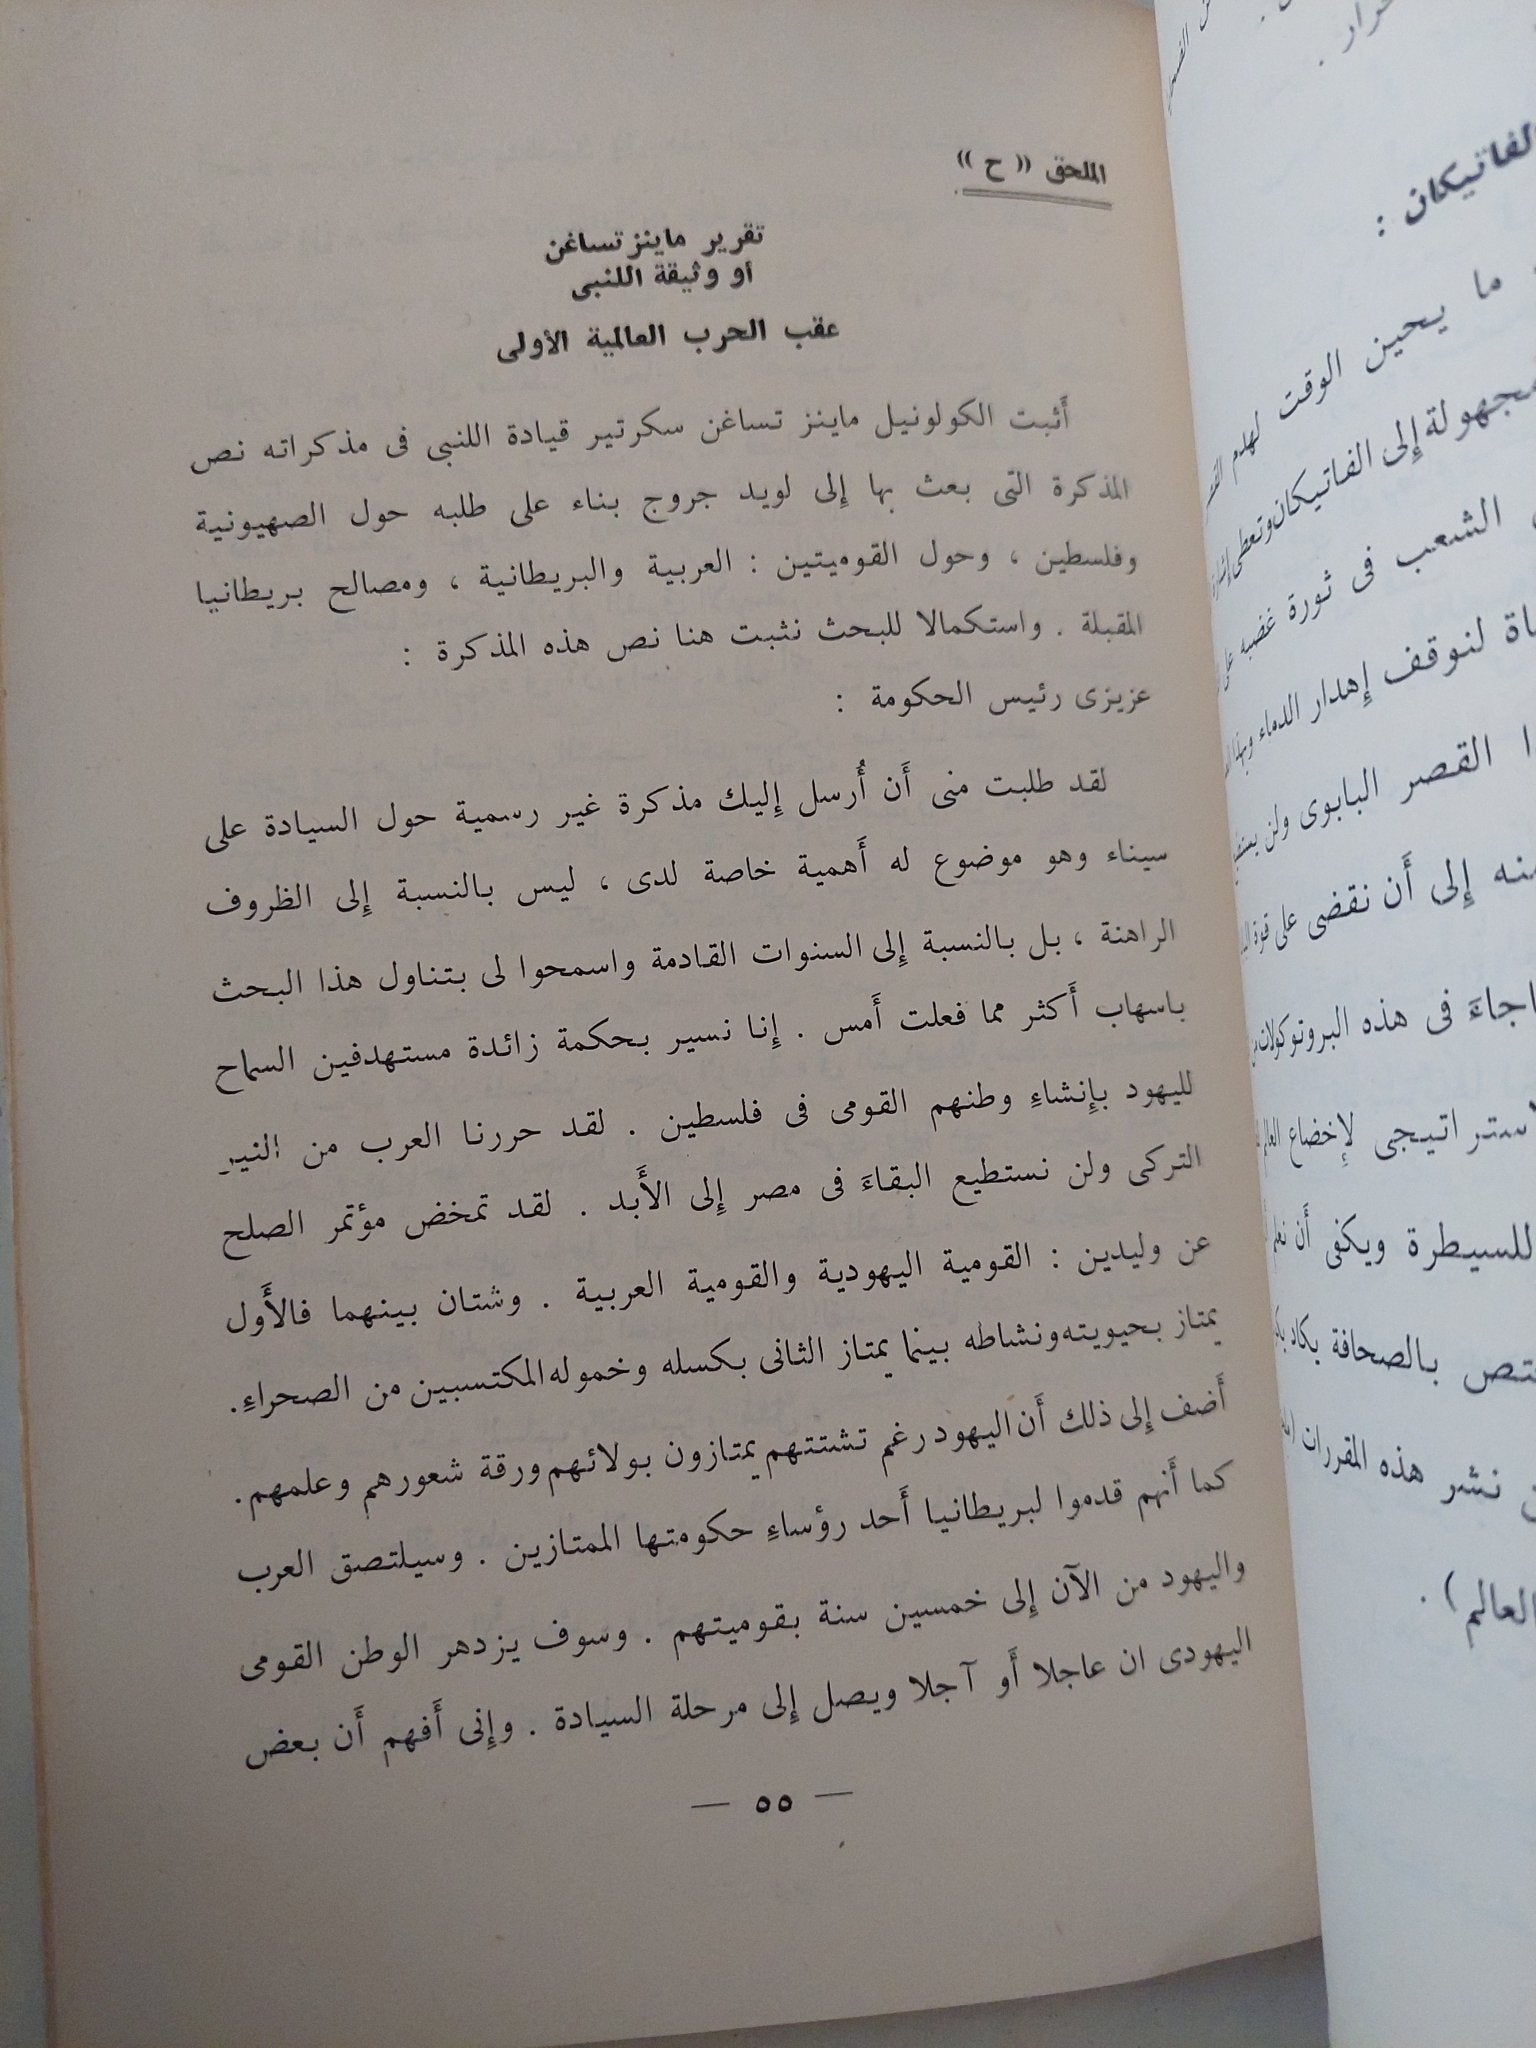 الملحق (( ح ))
تقرير ماينز تساغن
أو وثيقة اللنبى
عقب الحرب العالمية الأولى
أثبت الكولونيل ماينز تساغن سكرتير قيادة اللنبى فى مذكراته نص
المذكرة التى بعث بها إلى لويد جروج بناء على طلبه حول الصهيونية
وفلسطين ، وحول القوميتين : العربية والبريطانية ، ومصالح بريطانيا
المقبلة . واستكمالا للبحث نثبت هنا نص هذه المذكرة :
عزيزى رئيس الحكومة :
لقد طلبت منى أَن أُرسل إِليك مذكرة غير رسمية حول السيادة على
سيناء وهو موضوع له أَهمية خاصة لدى ، ليس بالنسبة إِلى الظروف
الراهنة ، بل بالنسبة إِلى السنوات القادمة واسمحوا لى بتناول هذا البحث
باسهاب أَكثر مما فعلت أَمس . إِنا نسير بحكمة زائدة مستهدفين السماح
لليهود بإِنشاءِ وطنهم القومى فى فلسطين . لقد حررنا العرب من النير
التركى ولن نستطيع البقاءَ فى مصر إِلى الأَبد . لقد تمخض مؤتمر الصلح
عن وليدين : القومية اليهودية والقومية العربية . وشتان بينهما فالأَول
يمتاز بحيويته ونشاطه بينما يمتاز الثانى بكسله وخموله المكتسبين من الصحراءِ .
أَضف إِلى ذلك أَن اليهود رغم تشتتهم يمتازون بولائهم ورقة شعورهم وعلمهم .
كما أَنهم قدموا لبريطانيا أَحد رؤساءِ حكومتها الممتازين . وسيلتصق العرب
واليهود من الآن إِلى خمسين سنة بقوميتهم . وسوف يزدهر الوطن القومى
اليهودى ان عاجلا أَو آجلا ويصل إِلى مرحلة السيادة . وإِنى أَفهم أَن بعض
— ٥٥ —
الفاتيكان :
ما يحين الوقت لهدم
إِلى الفاتيكان وتعطى
الشعب فى ثورة غضبه
لنوقف إِهدار الدماء
القصر البابوى ولن
إِلى أَن نقضى على قوة
فى هذه البروتوكولات
لإِخضاع العالم
للسيطرة ويكفى أَن
بالصحافة يكاد
نشر هذه المقررات
العالم ) .